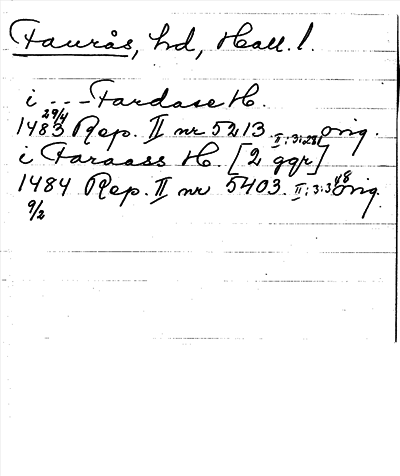 Faurås, hd, Hall. l.
i - - - Fardase H.
29/4
1483 Rep. II nr 5213 II:3:281 orig.
i Faraass H. [2 ggr]
1484 Rep. II nr 5403. II:3:348 orig.
9/2